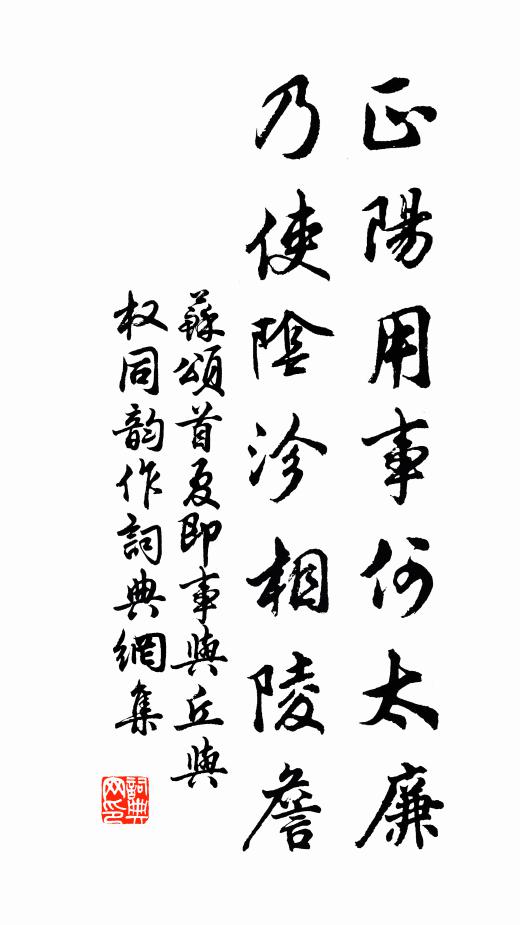 正陽用事何太廉
乃使陰沴相陵詹
蘇頌首夏即事與丘與
权同韵作詞典網集
詞典網印